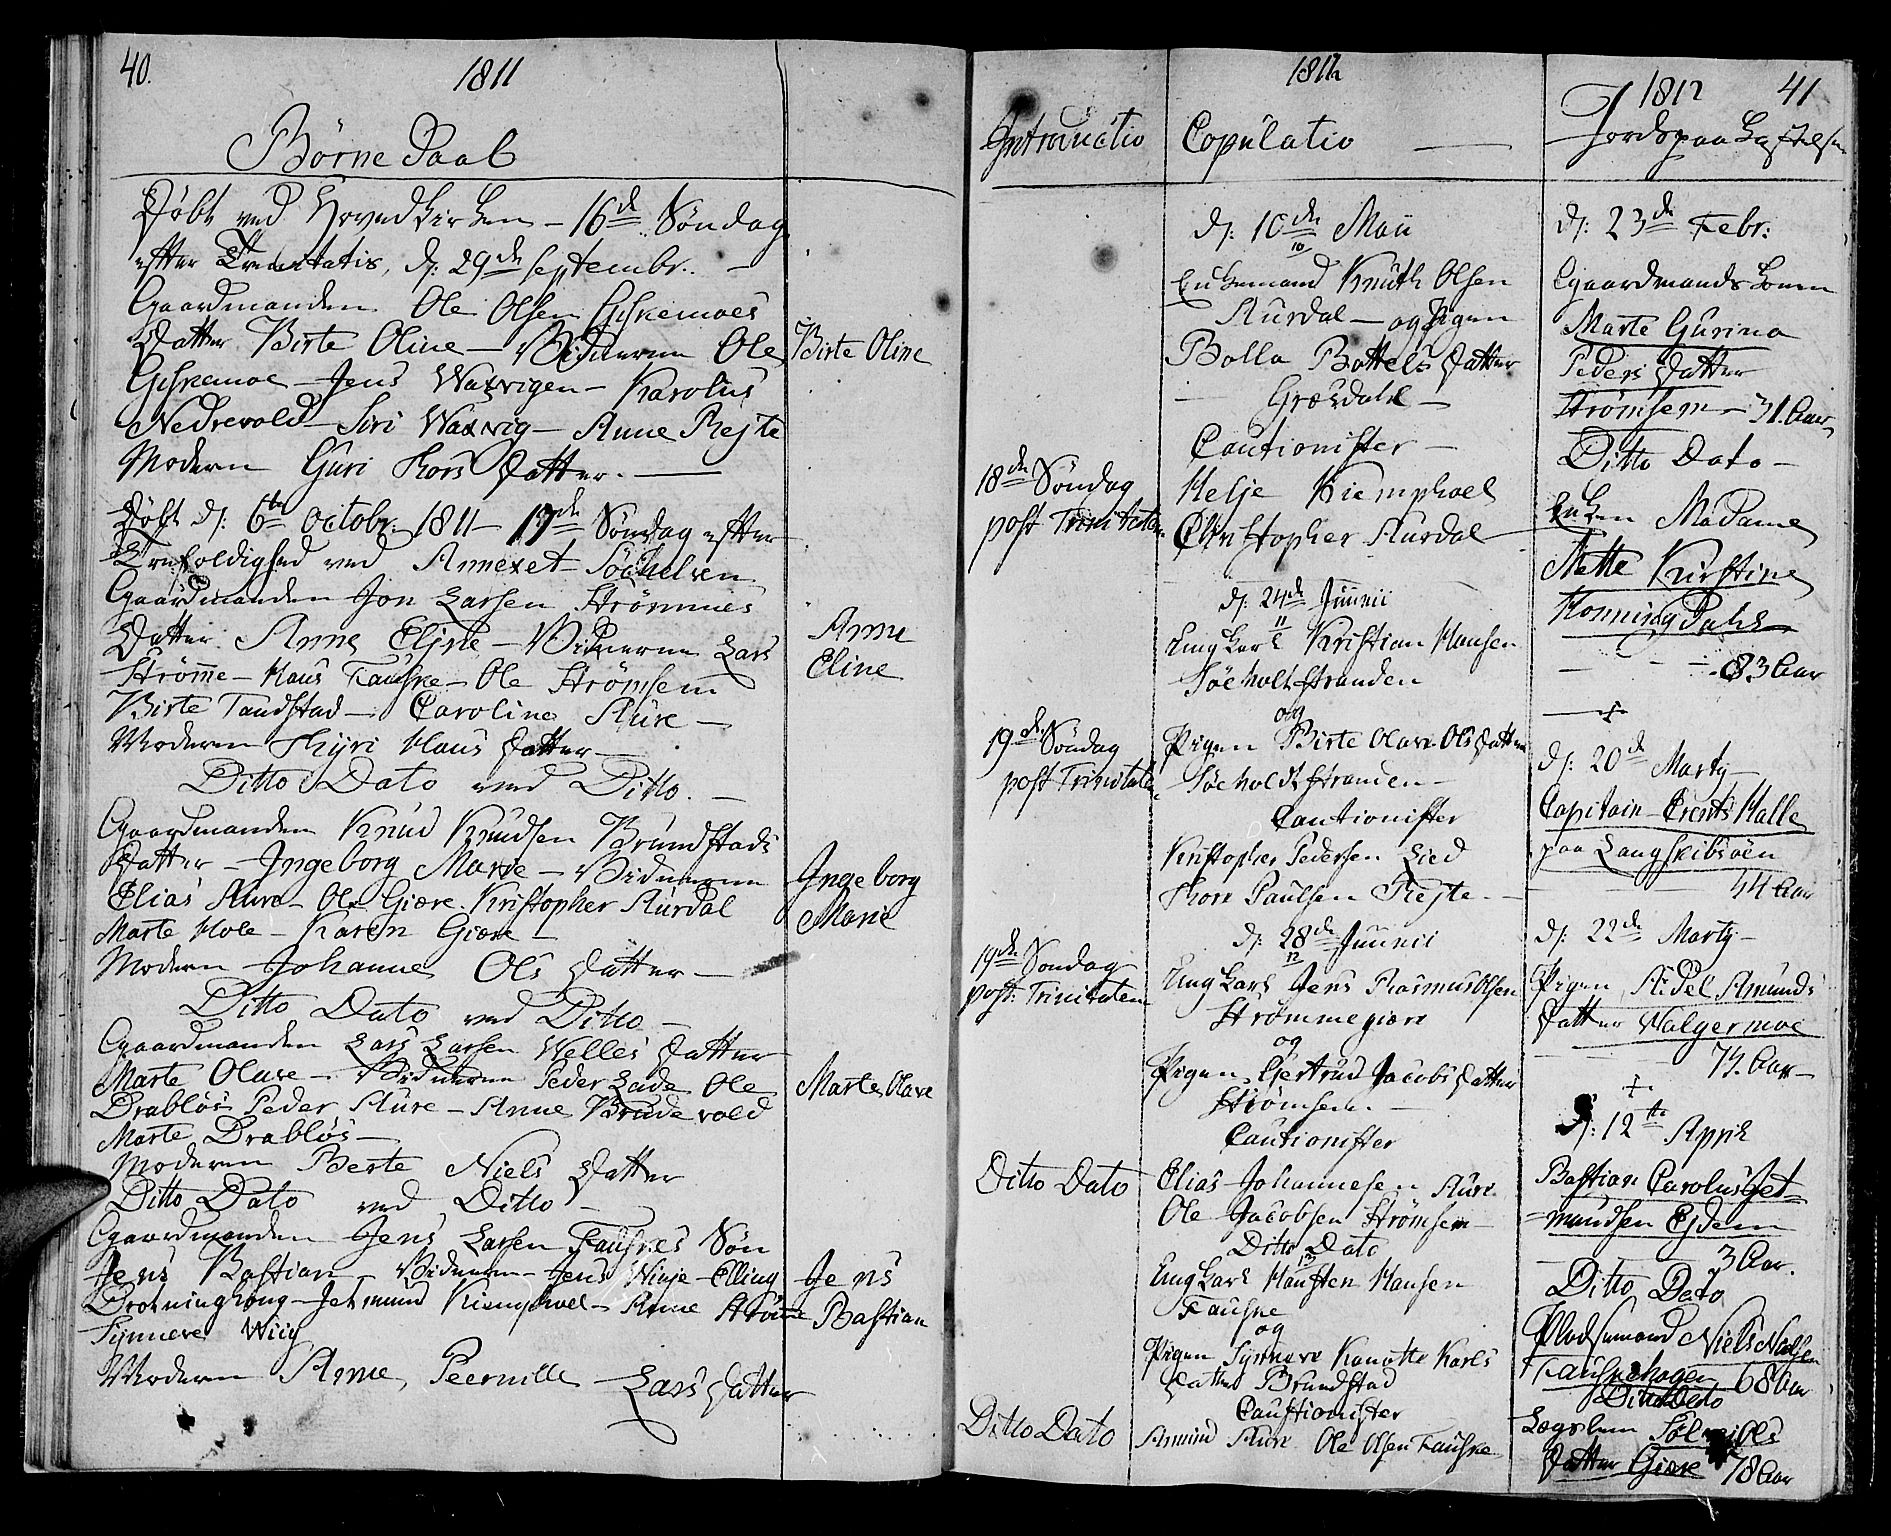 40.
1811
Börne Daab
Döbt ved Hovedkirken - 16de Söndag
efter Trenitatis, d: 29de Septembr. -
Gaardmanden Ole Olsen Giskemoes
Datter Birte Oline - Vidnerne Ole
Giskemoe - Jens Waxvigen - Karolus
Nedrevold - Siri Waxvig - Anne Rejte
Moderen Guri Thors Datter. -
Birte Oline
Döbt d: 6te octobr. 1811 - 17de Söndag efter
Trefoldighed ved Annexet Söchelven
Gaardmanden Jon Larsen Strömmes
Datter Anne Eline - Vidnerne Lars
Strömme - Hans Fauske - Ole Strömsem
Birte Tandstad - Caroline Aure -
Moderen Thyri Hans Datter -
Anne
Eline
Ditto Dato ved Ditto. -
Gaardmanden Knud Knudsen Brundstads
Datter - Ingeborg Marie - Vidnerne
Elias Aure - Ole Giære - Kristopher Aurdal
Marte Hole - Karen Giære -
Moderen Johanne Ols Datter -
Ingeborg
Marie
Ditto Dato ved Ditto -
Gaardmanden Lars Larsen Welles Datter
Marte Olave - Vidnerne Peder Lade Ole
Drablös Peder Aure - Anne Brudevold
Marte Drablös -
Moderen Berte Niels Datter
Marte Olave
Ditto Dato ved Ditto -
Gaardmanden Jens Larsen Fauskes Sön
Jens Bastian - Vidnerne - Jens Winje - Elling
Drotninghoug - Jetmund Kiemphoel - Anne Strömme
Synneve Wiig
Moderen Anne Peernille Lars Datter
Jens
Bastian
Introductio
18de Söndag
post Trinitaten
19de Söndag
post Trinitaten
19de Söndag
post: Trinitaten
Ditto Dato
Ditto Dato
1812
Copulatio -
d: 10de Maii
10
Enkemand Knuth Olsen
Aurdal - og Pigen
Bolla Bottels Datter
Græsdahl -
Cautionister -
Helje Kiemphoel
Christopher Aurdal
d: 24de Junii
11
Ung Karl Kristian Hansen
Söeholt stranden
og
Pigen Birte Olave Ols Datter
Söeholdt stranden -
Cautionister
Kristopher Pedersen Lied
Thore Paulsen Rejte -
d: 28de Junii
12
Ung Karl Jens Rasmus Olsen
Strömmegiære
og
Pigen Gjertrud Jacobs Datter
Strömsem. -
Cautionister
Elias Johannesen Aure
Ole Jacobsen Strömsem
Ditto Dato
13
Ung Karl Hansten Hansen
Fauske
og
Pigen Synneve Kanutte Karls
Datter Brundstad
Cautionister
Amund Aure Ole Olsen Fauske
1812 41
Jordspaa Kastelse
d: 23de Febr:
Gaardmands Konen
Marte Gurina
Peders Datter
Strömsem - 31. Aar
Ditto Dato -
Enken Madame
Mette Kirstine
Honningdahl
83 Aar
d: 20de Martij -
Capitain Crents Halle
paa Langskibsöen
44 Aar
d: 22de Martij -
Pigen Aidel Amunds
Datter Walgermoe
- 73. Aar -
d: 12te April
Bastian Carolus Jet=
=mundsen Ejdem
- 3 Aar.
Ditto Dato
Pladsemand Niels Nielsen
Fauskehagen 68 Aar
Ditto Dato
Lægslem Ols
Datter Giære 78 Aar